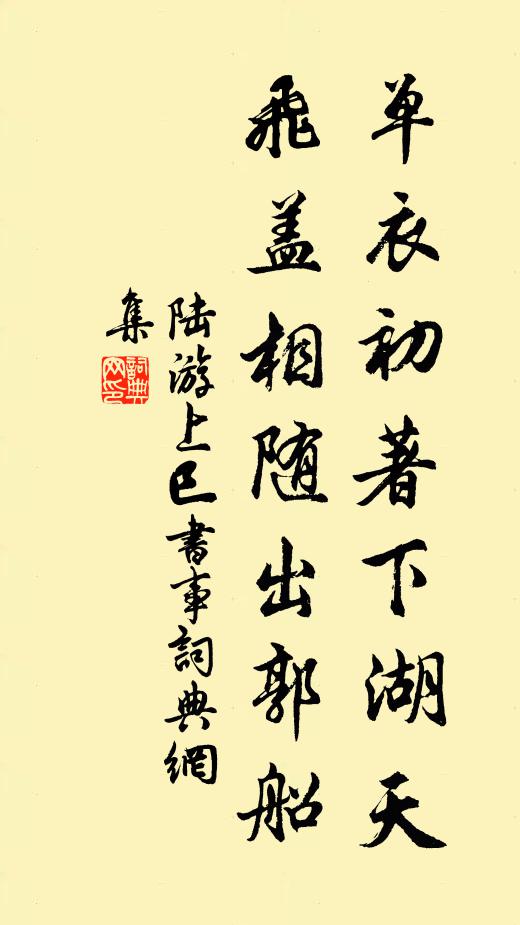 单衣初著下湖天
飛盖相随出郭船
陆游上巳書事詞典網
集
詞典
网印